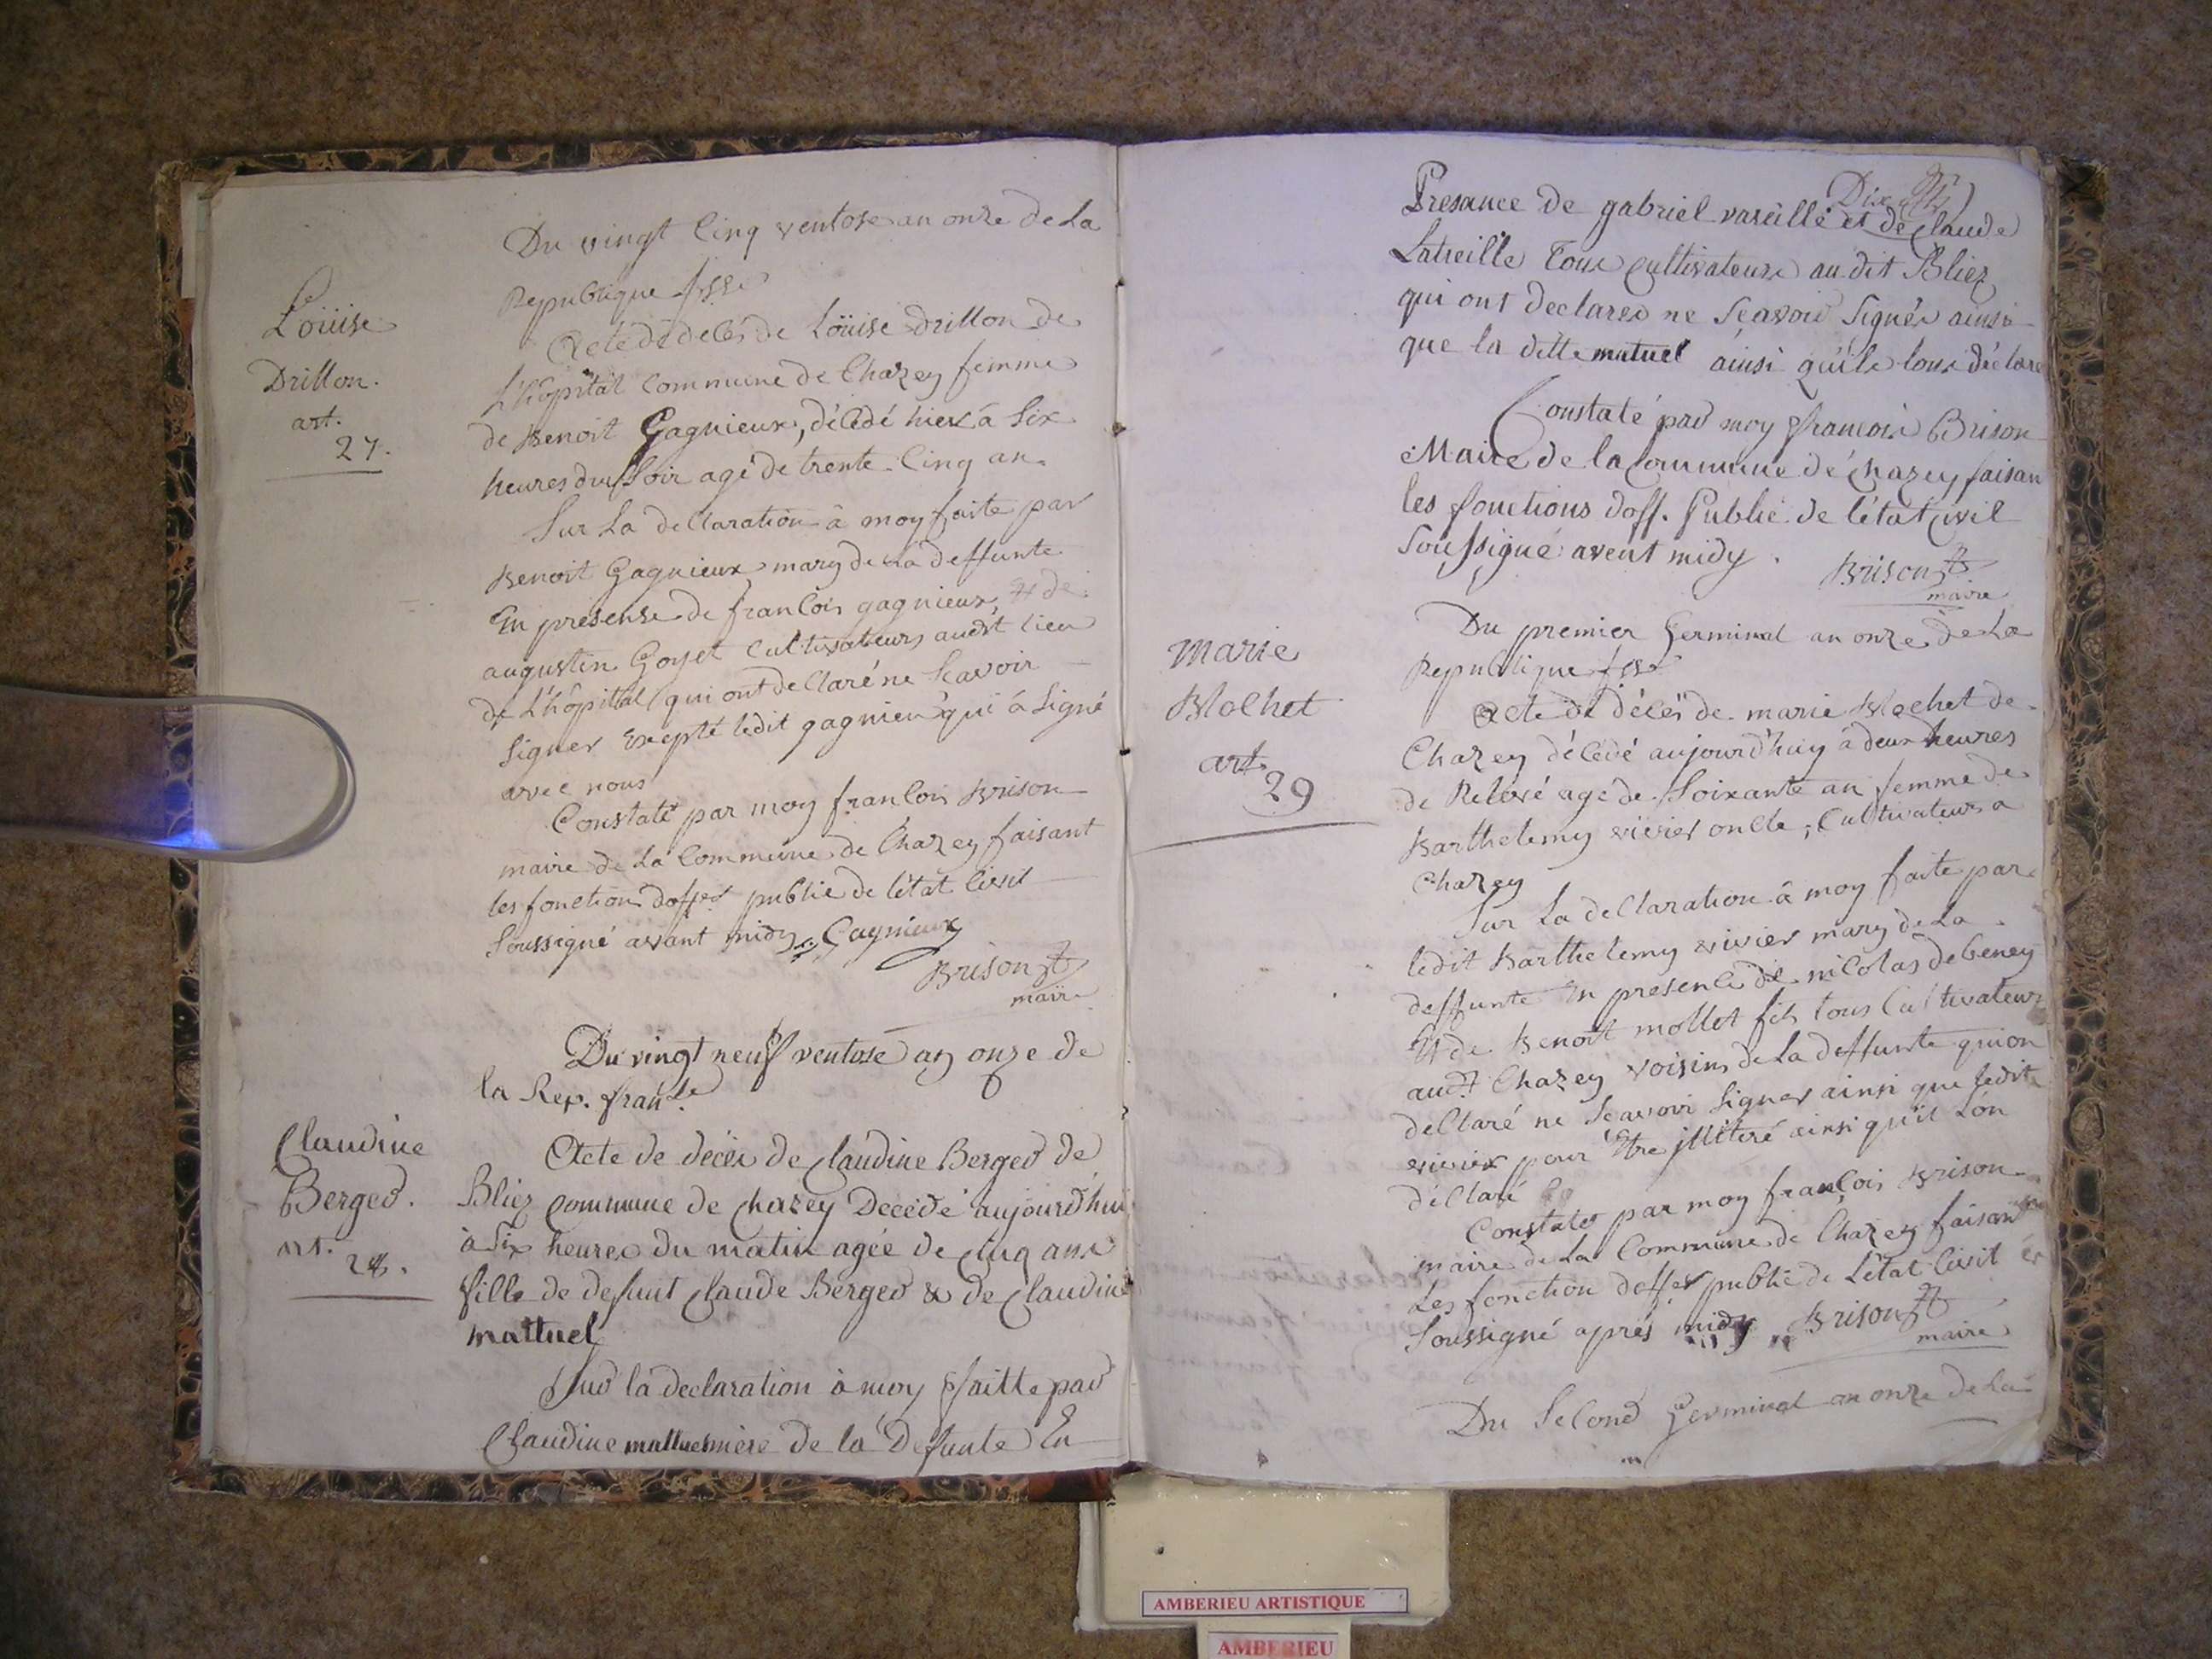 Du vingt Cinq ventose an onze de La
Republique fsse
Louise
Drillon.
art.
27.
Acte de decés de Loüise Drillon de
L'hôpital Commune de Chazey femme
de Benoit Gagnieux, décédé hier à Six
heures du Soir agé de trente Cinq an
Sur La declaration à moy faite par
Benoit Gagnieux mary de La deffunte
En presense de françois gagnieux, Et de
augustin Goyet Cultivateurs audt lieu
de L'hôpital qui ont declaré ne Scavoir
Signer Excepté ledit gagnieu qui à Signé
avec nous
Constaté par moy françois Brison
maire de La Commune de Chazey faisant
les fonction doffer publie de l'état Civil
Soussigné avant midy Gagnieux
Brison
maire
Du vingt neuf ventose an onze de
la Rep. franse.
Claudine
Berger.
art.
28.
Acte de décès de Claudine Berger de
Bliez commune de chazey Decedé aujourd'hui
à Six heures du matin agée de cinq ans
fille de defunt Claude Berger & de Claudine
mattuel
Sur la declaration à moy ffaitte par
Claudine mattuel mère de la Defunte En
Dix
Presance de gabriel vareille et de Claude
Latreille Tous cultivateurs au dit Bliez
qui ont declares ne Scavoir Signés ainsi
que la ditte matuel ainsi qu'ils lons déclare
Constaté par moy francois Brison
Maire de la Commune de chazey, faisan
les fonctions doff. Public de l'état civil
Soussigné avent midy.
Brison
maire
Du premier Germinal an onze de La
Republique fsse
marie
Blochet
art.
29
Acte de décès de marie Blochet de
Chazey décédé aujourd'huy à deux heures
de Relevé age de Soixante an femme de
Barthelemy vivier oncle, Cultivateur a
Chazey
Sur La declaration à moy faite par
ledit Barthelemy vivier mary de La
deffunte En presence de nicolas debeney
Et de Benoit mollet fils tous Cultivateur
audt Chazey voisins de La deffunte qui on
declaré ne Scavoir Signer ainsi que ledit
vivier pour Etre illiteré ainsi qu'il L'on
déclaré
Constater par moy françois Brison
maire de La Commune de Chazey faisan
Les fonction doffer publie de L'état Civil
Soussigné aprés midy Brison
maire
Du Second Germinal an onze de La
AMBERIEU ARTISTIQUE
AMBERIEU